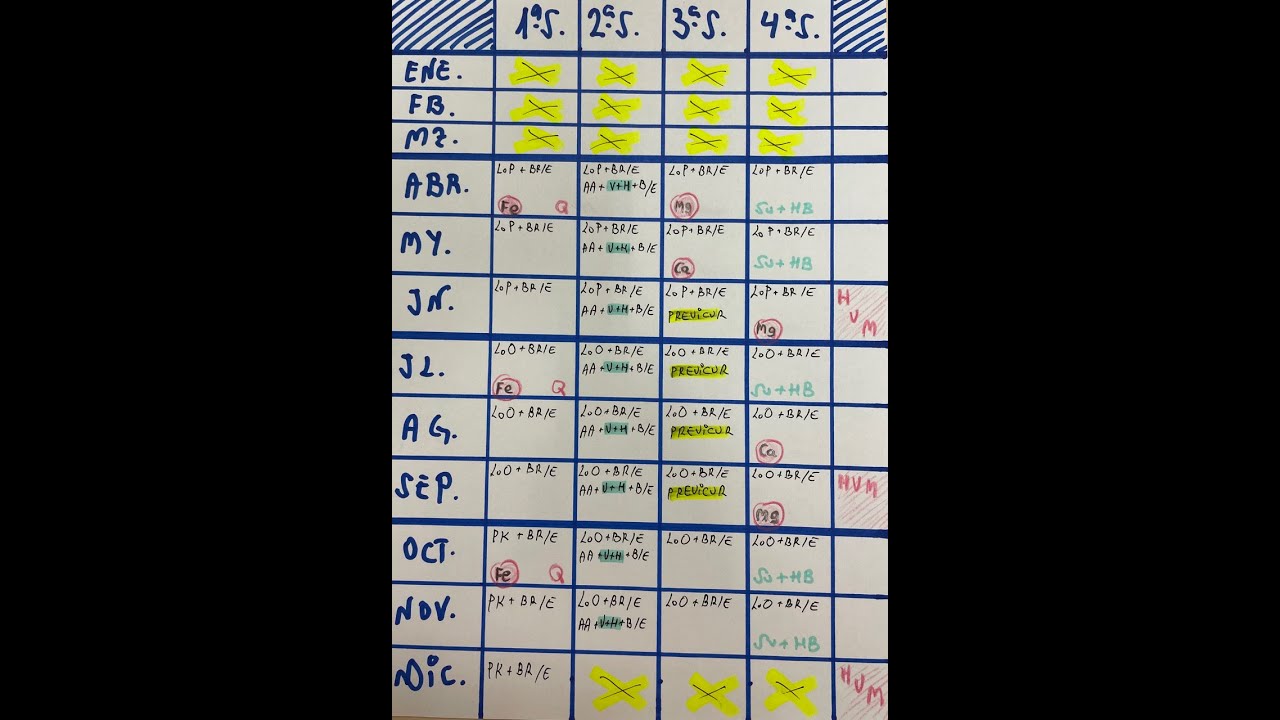 1ª S. 2ª S. 3ª S. 4ª S.
ENE. X X X X
FB. X X X X
MZ. X X X X
ABR. LoP + BR/E LoP + BR/E LoP + BR/E LoP + BR/E
AA + V+H + B/E
Fe Q Mg Su + HB
MY. LoP + BR/E LoP + BR/E LoP + BR/E LoP + BR/E
AA + V+H + B/E
Ca Su + HB
JN. LoP + BR/E LoP + BR/E LoP + BR/E LoP + BR/E HUM
AA + V+H + B/E PREVICUR
Mg
JL. LoO + BR/E LoO + BR/E LoO + BR/E LoO + BR/E
AA + V+H + B/E PREVICUR
Fe Q Su + HB
AG. LoO + BR/E LoO + BR/E LoO + BR/E LoO + BR/E
AA + V+H + B/E PREVICUR
Ca
SEP. LoO + BR/E LoO + BR/E LoO + BR/E LoO + BR/E HUM
AA + V+H + B/E PREVICUR
Mg
OCT. PK + BR/E LoO + BR/E LoO + BR/E LoO + BR/E
AA + V+H + B/E
Fe Q Su + HB
NOV. PK + BR/E LoO + BR/E LoO + BR/E LoO + BR/E
AA + V+H + B/E
Su + HB
DIC. PK + BR/E X X X HUM